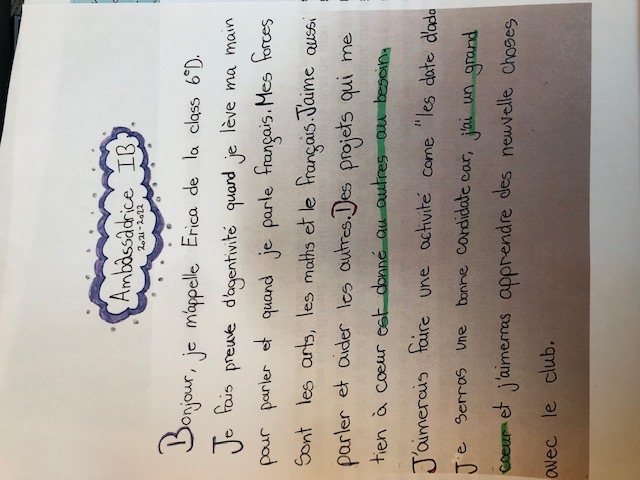 Ambassadorice IB
2021-2022
Bonjour, je m'appelle Erica de la class 6°D.
Je fais preuve d'agentivité quand je lève ma main
pour parler et quand je parle français. Mes forces
sont les arts, les maths et le français. J'aime aussi
parler et aider les autres. Des projets qui me
tien à coeur est donné au autres au besoin.
J'aimerais faire une activité come "les date d'ado
Je serras une bonne candidate car, j'ai un grand
coeur et j'aimerras apprendre des nouvelle choses
avec le club.